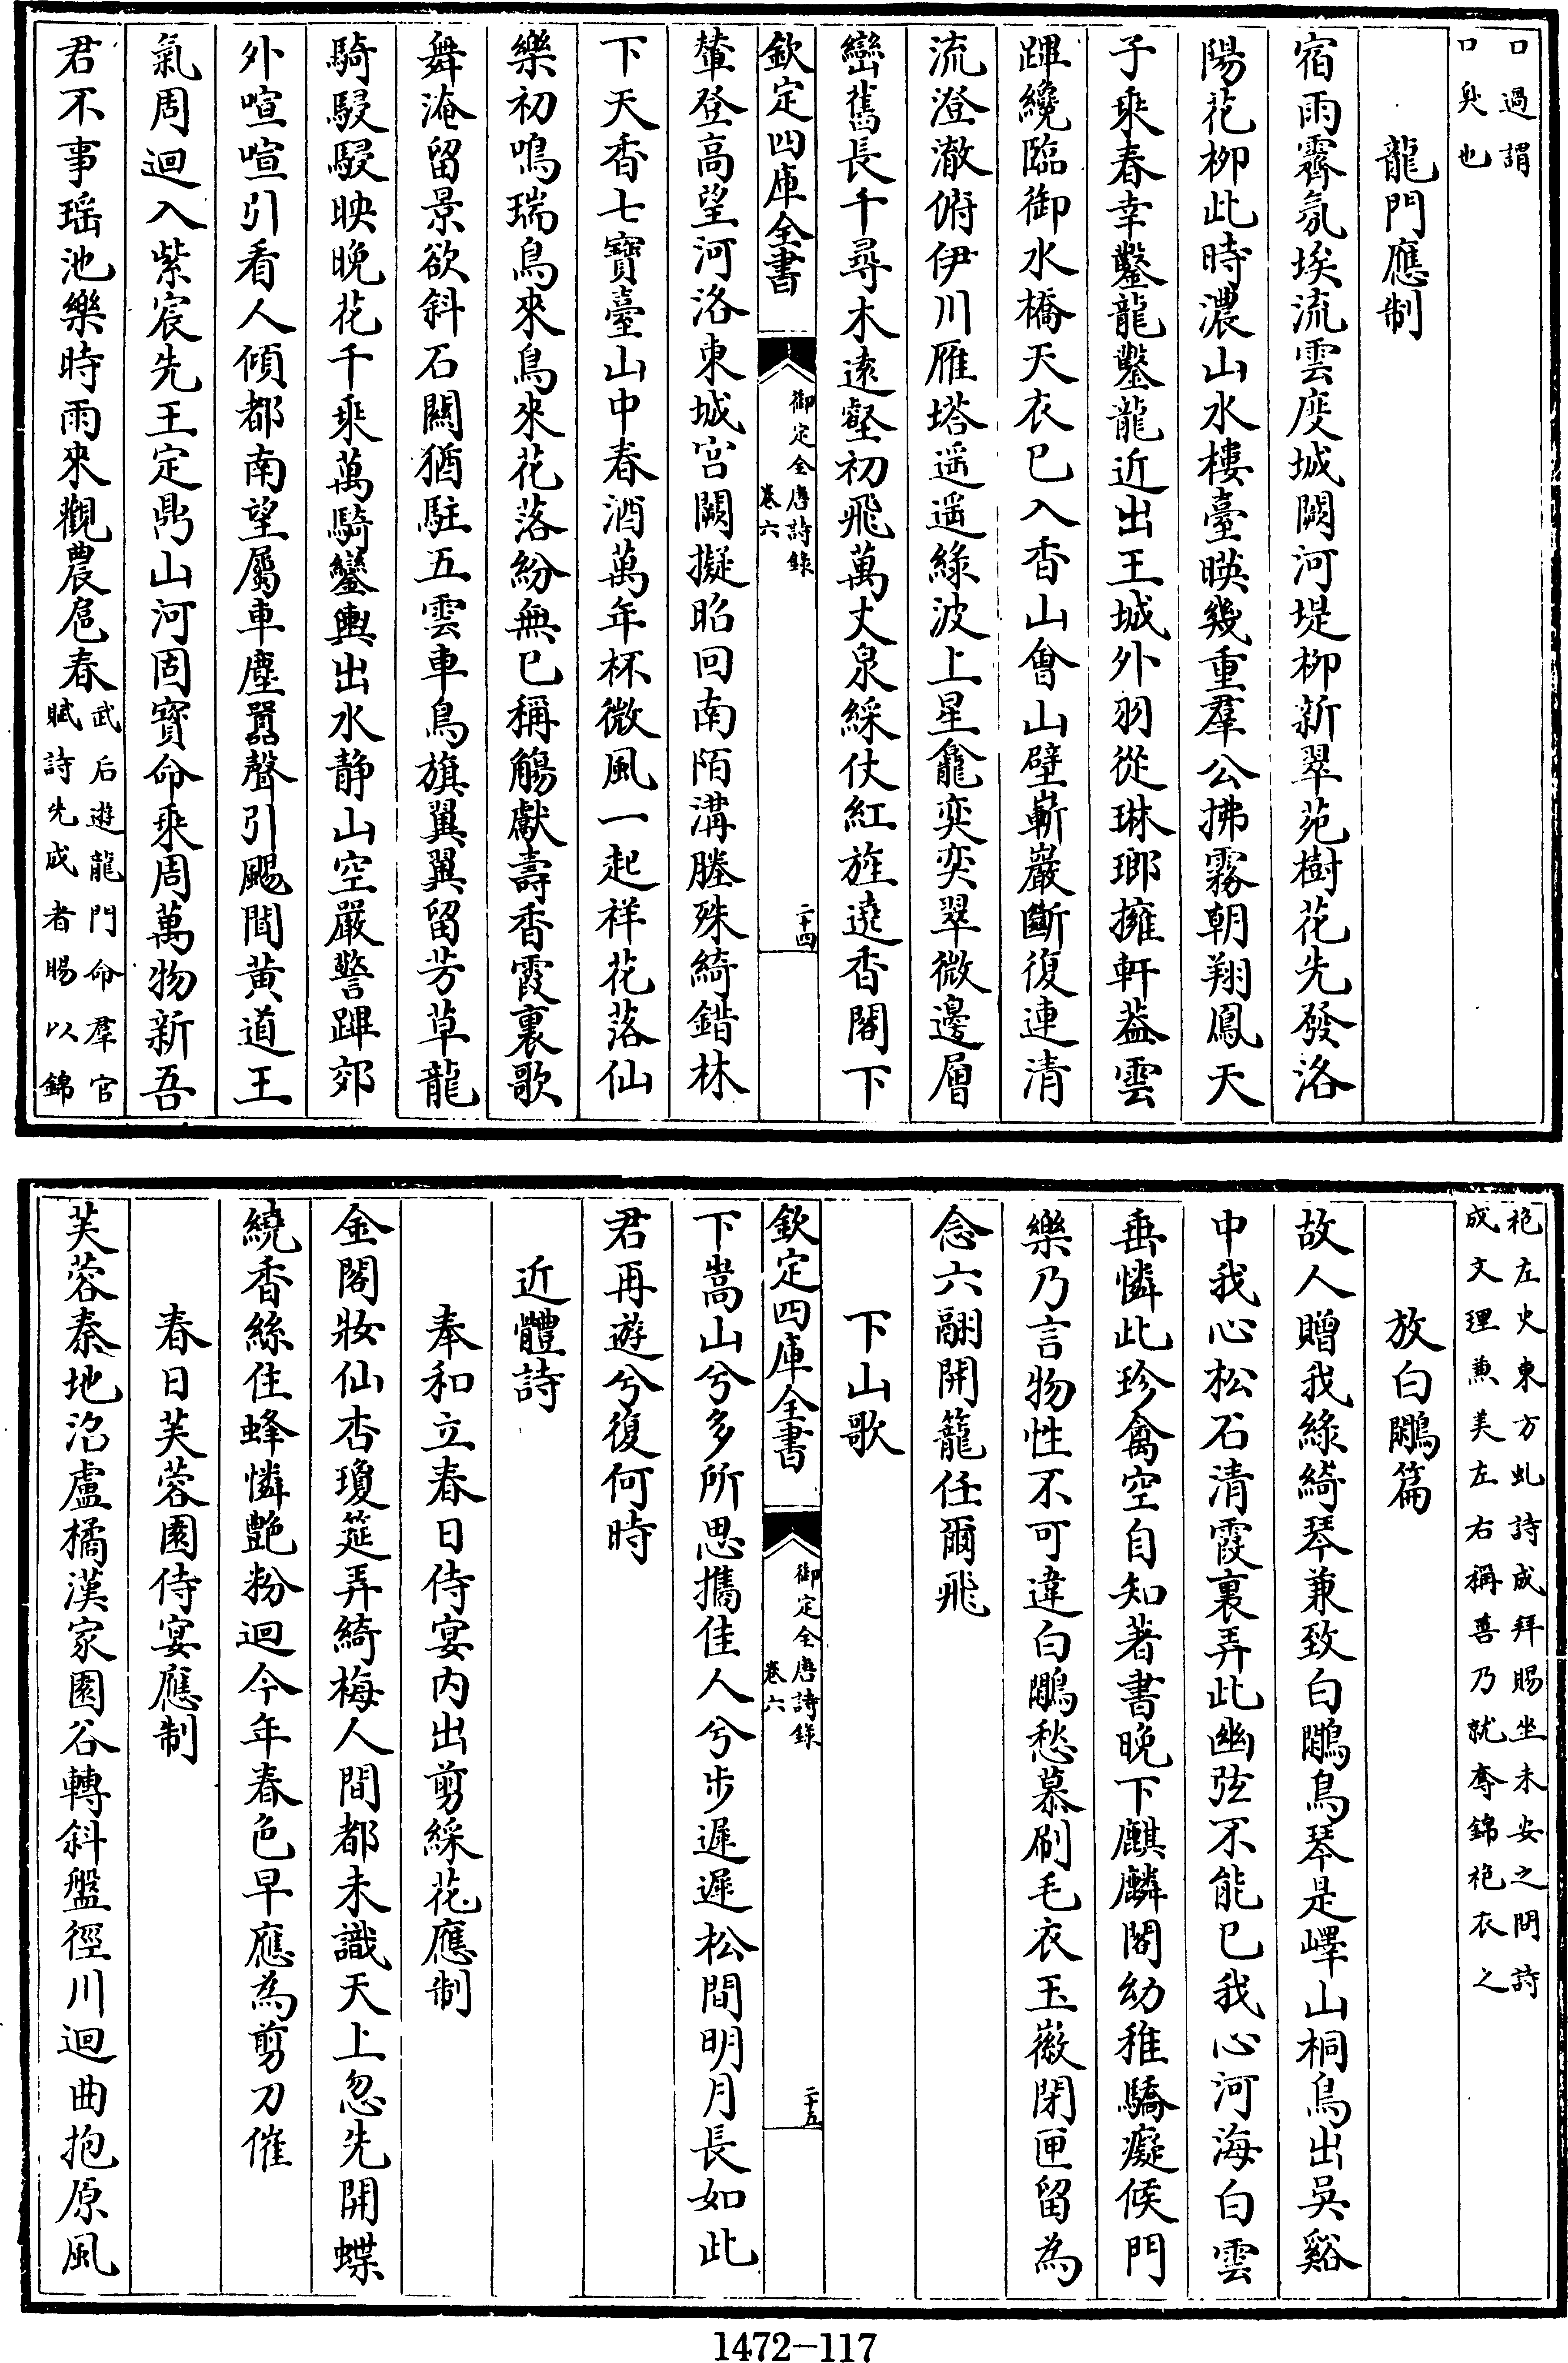 口過謂
口臭也
龍門應制
宿雨霽氛埃流雲度城闕河堤柳新翠苑樹花先發洛
陽花柳此時濃山水樓臺暎幾重羣公拂霧朝翔鳳天
子乘春幸鑿龍鑿龍近出王城外羽從琳瑯擁軒葢雲
蹕纔臨御水橋天衣已入香山會山壁嶄巖斷復連清
流澄澈俯伊川雁塔遥遥綠波上星龕奕奕翠微邊層
巒舊長千尋木遠壑初飛萬丈泉綵仗紅旌遶香閣下
欽定四庫全書
御定全唐詩錄
卷六
二十四
輦登高望河洛東城宫闕擬昭回南陌溝塍殊綺錯林
下天香七寶臺山中春酒萬年杯微風一起祥花落仙
樂初鳴瑞鳥來鳥來花落紛無已稱觴獻壽香霞裏歌
舞淹留景欲斜石闗猶駐五雲車鳥旗翼翼留芳草龍
騎駸駸映晚花千乘萬騎鑾輿出水静山空嚴警蹕郊
外喧喧引看人傾都南望屬車塵囂聲引颺聞黄道王
氣周迴入紫宸先王定鼎山河固寳命乘周萬物新吾
君不事瑶池樂時雨來觀農扈春
武后遊龍門命羣官
賦詩先成者賜以錦
袍左史東方虬詩成拜賜坐未安之問詩
成文理蕪美左右稱善乃就奪錦袍衣之
放白鷴篇
故人贈我綠綺琴兼致白鷴鳥琴是嶧山桐鳥出吳谿
中我心松石清霞裏弄此幽弦不能已我心河海白雲
垂憐此珍禽空自知著書晚下麒麟閣幼稚驕癡候門
樂乃言物性不可違白鷴愁慕刷毛衣玉徽閉匣留為
念六翮開籠任爾飛
下山歌
欽定四庫全書
御定全唐詩錄
卷六
二十五
下嵩山兮多所思攜佳人兮步遲遲松間明月長如此
君再遊兮復何時
近體詩
奉和立春日侍宴内出剪綵花應制
金閣妝仙杏瓊筵弄綺梅人間都未識天上忽先開蝶
繞香絲住蜂憐艶粉迴今年春色早應為剪刀催
春日芙蓉園侍宴應制
芙蓉秦地沼盧橘漢家園谷轉斜盤徑川迴曲抱原風
1472-117